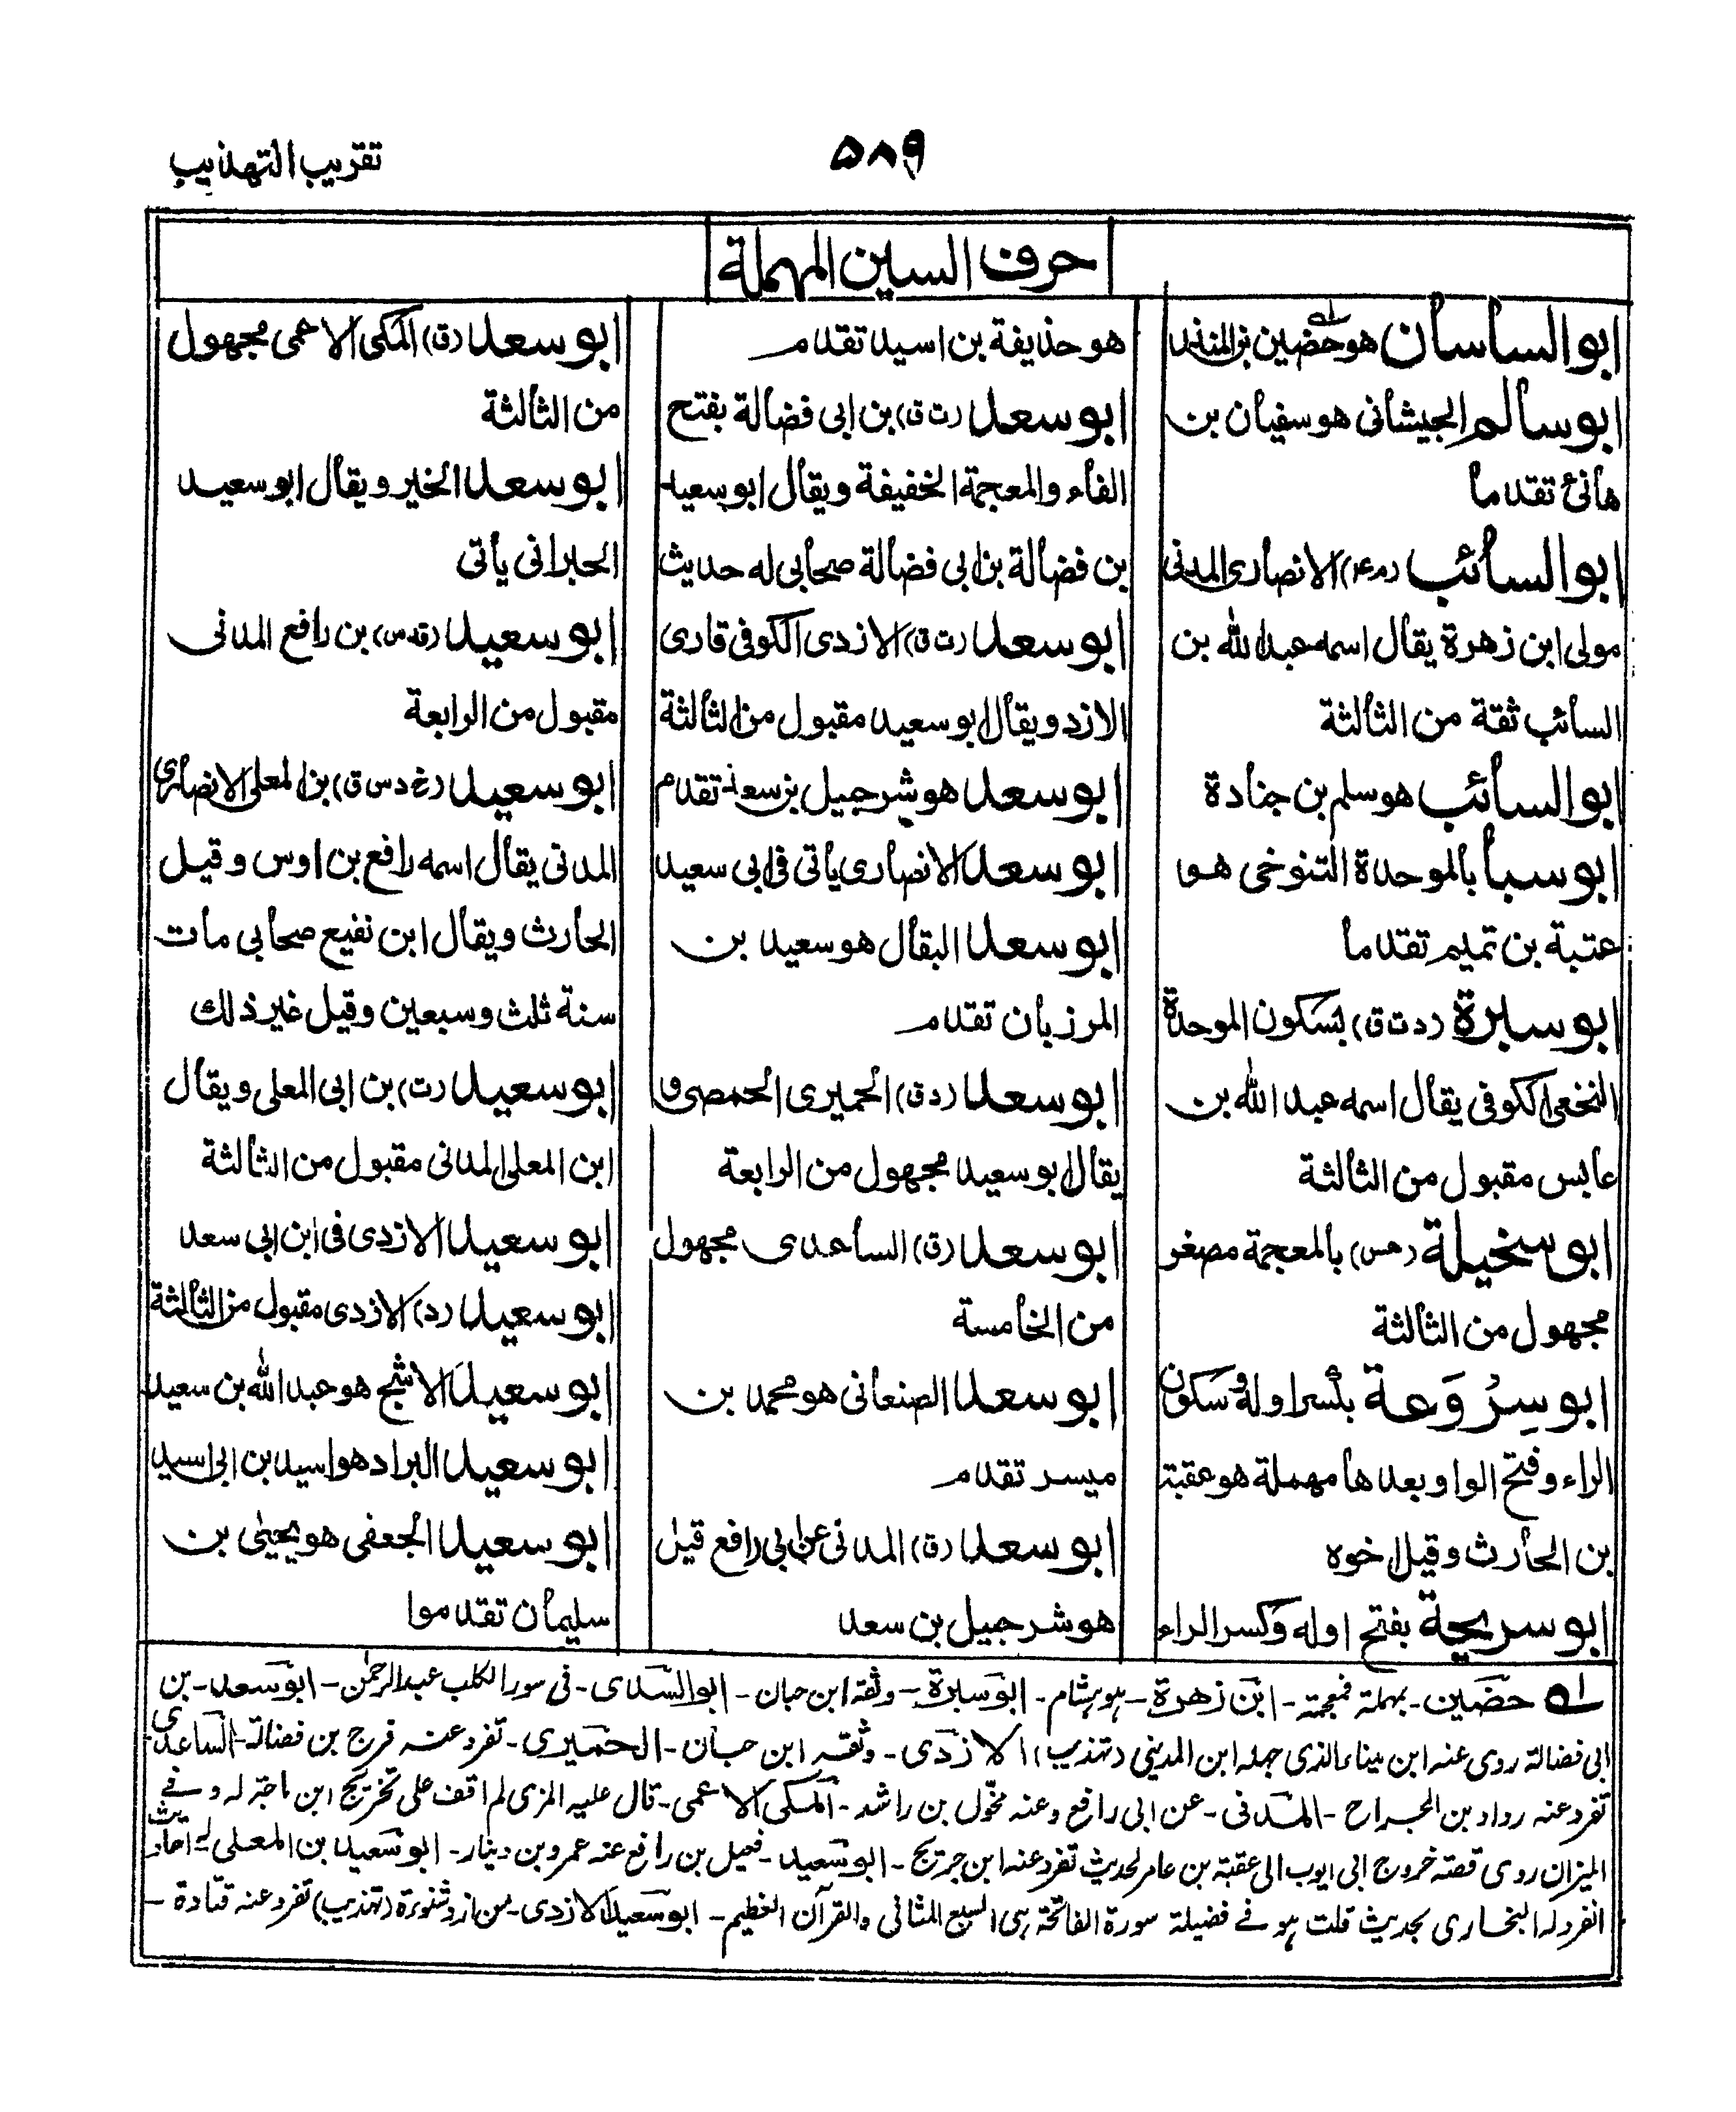 تقريب التهذيب
۵۸۹
حرف السين المهملة
ابو الساسان هو حضين بن المنذر
ابو سالم الجيشانى هو سفيان بن
هانئ تقدما
ابو السائب (م ۴) الانصارى المدنى
مولى ابن زهرة يقال اسمه عبد الله بن
السائب ثقة من الثالثة
ابو السائب هو سلم بن جنادة
ابو سبأ بالموحدة التنوخى هو
عتبة بن تميم تقدما
ابو سبرة (د ت ق) بسكون الموحدة
النخعى الكوفى يقال اسمه عبد الله بن
عابس مقبول من الثالثة
ابو سخيلة (عس) بالمعجمة مصغر
مجهول من الثالثة
ابو سِرْوَعة بكسر اوله وسكون
الراء وفتح الواو بعدها مهملة هو عقبة
بن الحارث وقيل اخوه
ابو سريحة بفتح اوله وكسر الراء
هو حذيفة بن اسيد تقدم
ابو سعد (ت ق) بن ابى فضالة بفتح
الفاء والمعجمة الخفيفة ويقال ابو سعيد
بن فضالة بن ابى فضالة صحابى له حديث
ابو سعد (ت ق) الازدى الكوفى قارى
الازد ويقال ابو سعيد مقبول من الثالثة
ابو سعد هو شرحبيل بن سعد تقدم
ابو سعد الانصارى ياتى فى ابى سعيد
ابو سعد البقال هو سعيد بن
المرزبان تقدم
ابو سعد (د ق) الحميرى الحمصى و
يقال ابو سعيد مجهول من الرابعة
ابو سعد (ق) الساعدى مجهول
من الخامسة
ابو سعد الصنعانى هو محمد بن
ميسر تقدم
ابو سعد (ق) المدنى عن ابى رافع قيل
هو شرحبيل بن سعد
ابو سعد (ق) المكى الاعمى مجهول
من الثالثة
ابو سعد الخير ويقال ابو سعيد
الحبرانى يأتى
ابو سعيد (قد س) بن رافع المدنى
مقبول من الرابعة
ابو سعيد (خ د س ق) بن المعلى الانصارى
المدنى يقال اسمه رافع بن اوس وقيل
الحارث ويقال ابن نفيع صحابى مات
سنة ثلث وسبعين وقيل غير ذلك
ابو سعيد (ت) بن ابى المعلى ويقال
ابن المعلى المدنى مقبول من الثالثة
ابو سعيد الازدى فى ابن ابى سعد
ابو سعيد (د) الازدى مقبول من الثالثة
ابو سعيد الاشج هو عبد الله بن سعيد
ابو سعيد البراد هو اسيد بن ابى اسيد
ابو سعيد الجعفى هو يحيى بن
سليمان تقدموا
حضين - بمهملة فمعجمة - ابن زهرة - هو هشام - ابو سبرة - وثقه ابن حبان - ابو السدى - فى سور الكلب عبد الرحمٰن - ابو سعد - بن
ابى فضالة روى عنه ابن ميناء الذى جهله ابن المدينى (تهذيب) الازدى - وثقه ابن حبان - الحميرى - تفرد عنه فرج بن فضالة - الساعدى
تفرد عنه رواد بن الجراح - المدنى - عن ابى رافع وعنه مخول بن راشد - المكى الاعمى - قال عليه المزى لم اقف على تخريج ابن ماجة له وفى
الميزان روى قصة خروج ابى ايوب الى عقبة بن عامر لحديث تفرد عنه ابن جريج - ابو سعيد - بن رافع عنه عمرو بن دينار - ابو سعيد بن المعلى له احاديث
انفرد له البخارى بحديث قلت هو فى فضيلة سورة الفاتحة هى السبع المثانى والقرآن العظيم - ابو سعيد الازدى - من ازد شنوءة (تهذيب) تفرد عنه قتادة -